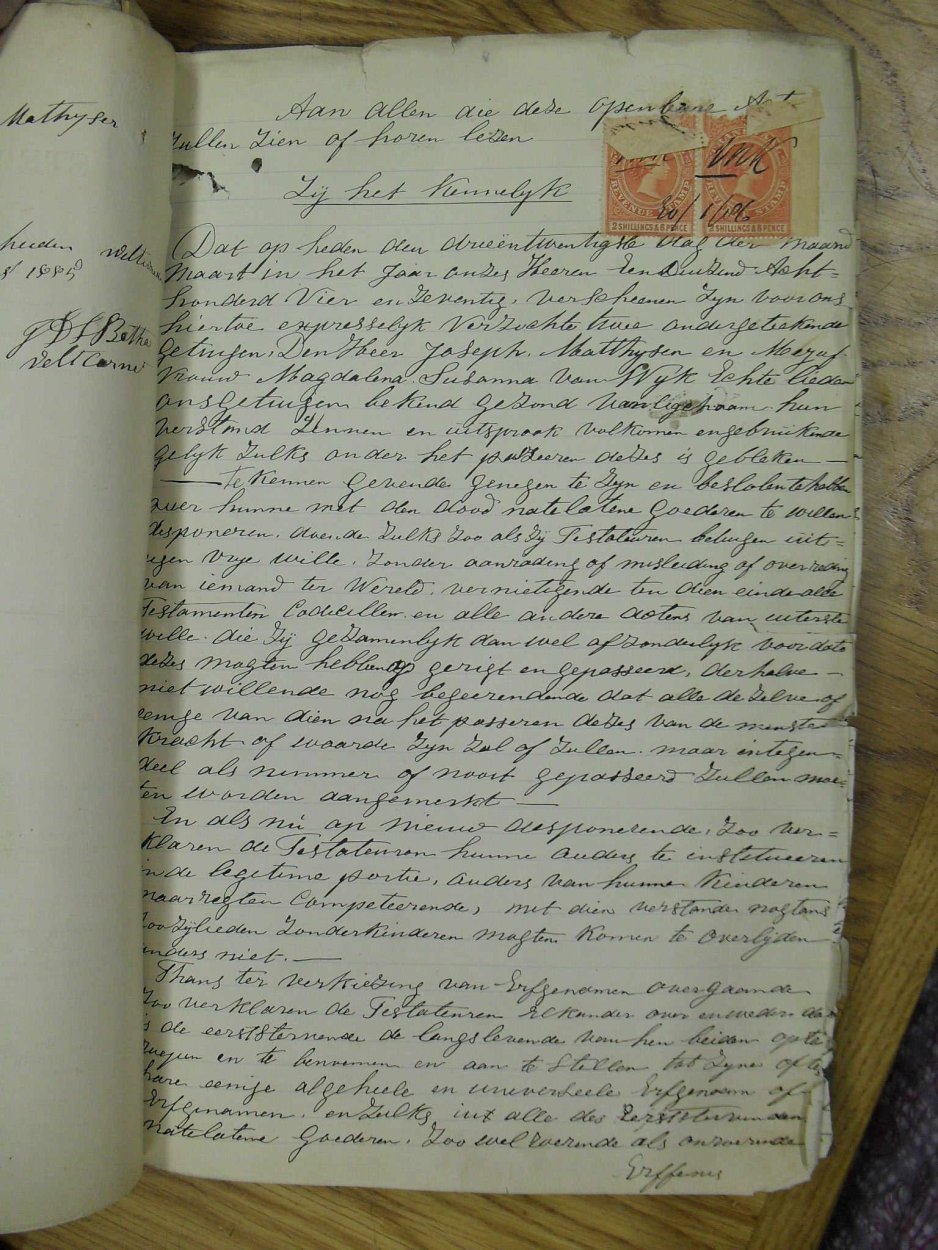 Mathyser
heeden
1885
Bethe
Veltcorne
Aan allen die deze openbare Act
Zullen Zien of horen lezen
Zij het Kennelyk
REVENUE STAMP
2 SHILLINGS & 6 PENCE
REVENUE STAMP
2 SHILLINGS & 6 PENCE
Dat op heden den drieëntwentigste dag der maand
Maart in het Jaar onzes Heeren Een Duizend Acht=
honderd Vier en Zeventig, verscheenen Zyn voor ons
hiertoe expresselyk Verzochte twee ondergeteekende
getuigen, Den Heer Joseph Matthysen en Mejuf
Vrouw Magdalena Susanna van Wÿk Echte lieden
ons getuigen bekend gezond van ligchaam hun
verstand Zinnen en uitspraak volkomen en gebruikende
gelyk Zulks onder het passeeren dezes is gebleken —
— Te Kennen gevende genegen te Zyn en besloten te hebben
over hunne met den dood natelatene Goederen te willen
desponeren, doende Zulks Zoo als Zÿ Testateuren betuigen uit=
eigen vrye wille, Zonder aanrading of misleiding of overreding
van iemand ter Wereld, vernietigende ten dien einde alle
Testamenten Codecillen en alle andere actens van uiterste
wille die Zÿ gezamenlyk dan wel afzonderlyk voor dato
dezes mogten hebben gerigt en gepasseerd, derhalve —
niet willende nog begeerendende dat alle de Zelve of
eenige van dien na het passeren dezes van de minste
Kracht of waarde Zyn Zal of Zullen maar in tegen=
deel als nimmer of nooit gepasseerd Zullen moe=
ten worden aangemerkt —
En als nù op nieuw desponerende, Zoo ver=
klaren de Testateuren hunne ouders te institueeren
in de legetime portie, ouders van hunne Kinderen
naar regten Competeerende, met dien verstande nogtans
Zoo Zÿlieden Zonder kinderen mogten Komen te Overlÿden
anders niet. —
Thans ter verkiezing van Erfgenamen overgaande
Zoo verklaren de Testateuren Elkander over en weder
de eerststervende de langslevende van hen beiden op te
en te benoemen en aan te Stellen tot Zyne of
hare eenige algeheele en univerzeele Erfgenaam of
Erfgenamen, en Zulks uit alle des Eerststervenden
natelatene Goederen, Zoo wel roerende als onroerende
Erffenis